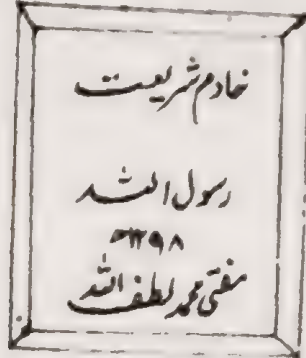 خادم شریعت
رسول اللہ
۱۲۹۸
مفتی محمد لطف اللہ